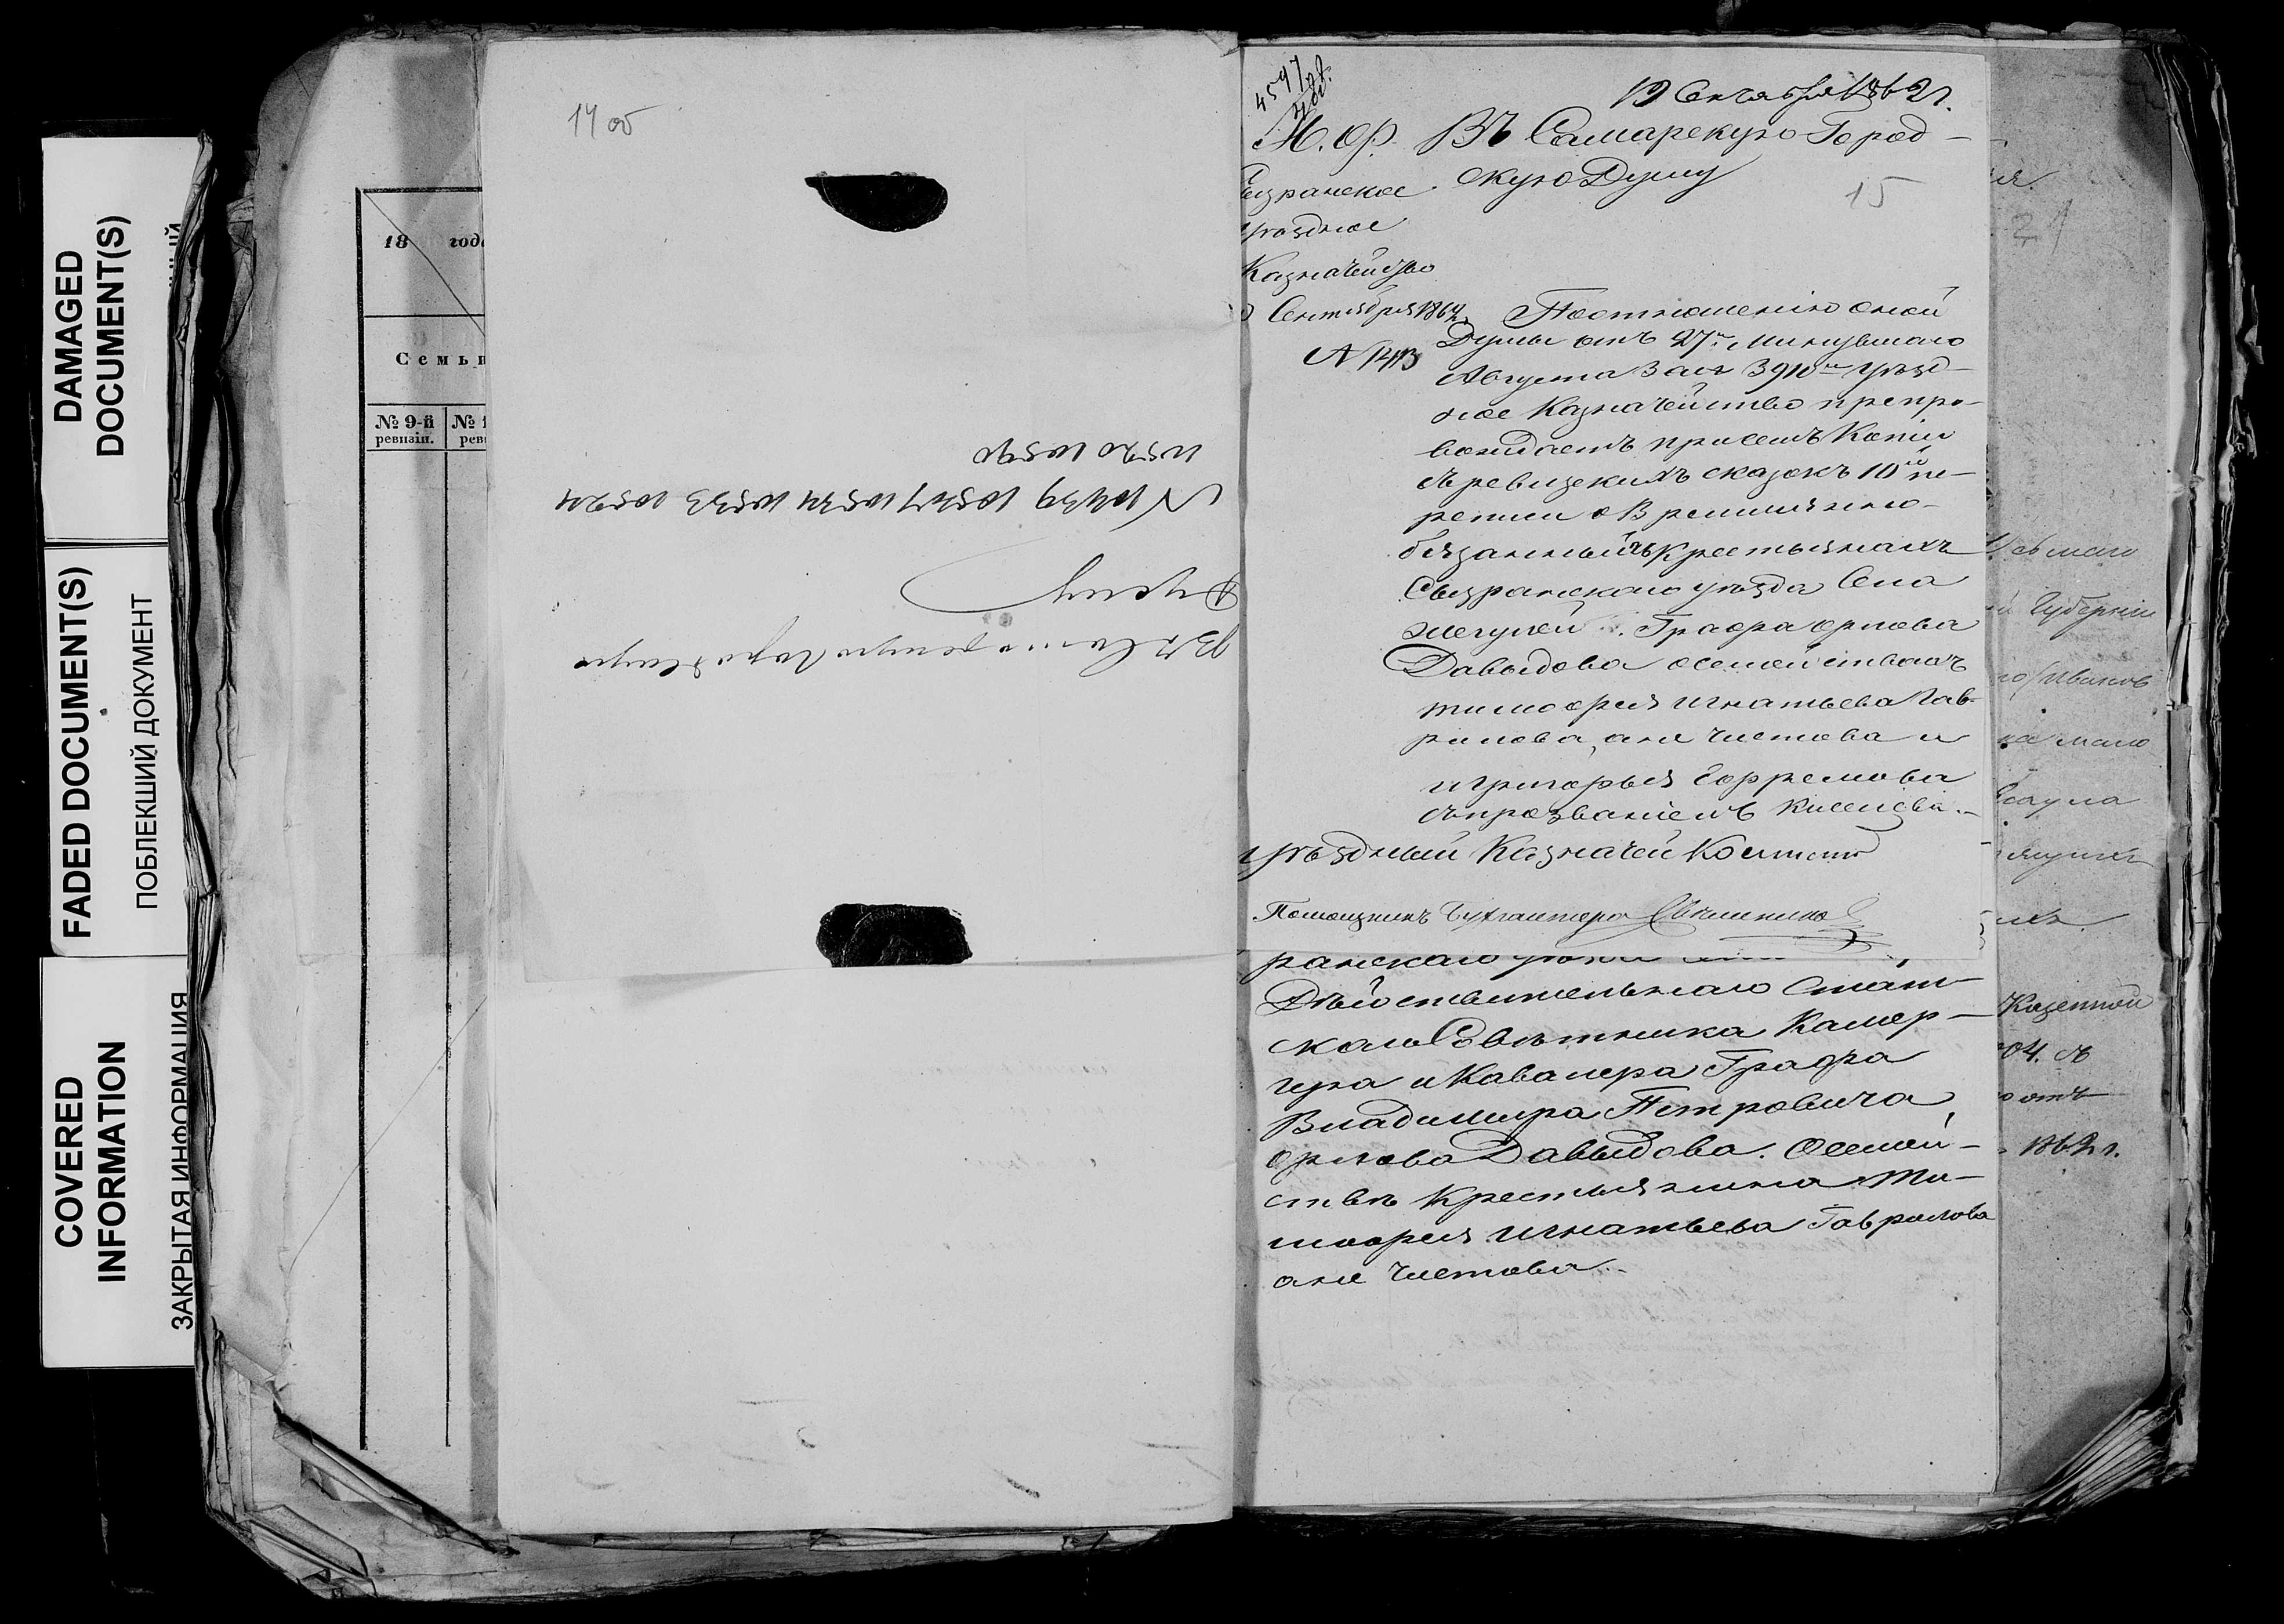 DAMAGED
DOCUMENT(S)
FADED DOCUMENT(S)
ПОБЛЕКШИЙ ДОКУМЕНТ
COVERED
INFORMATION
ЗАКРЫТАЯ ИНФОРМАЦИЯ
18 год
Семьи
№ 9-й
ревизіи.
№ 1
реви
14 об
Въ Самарскую Городскую
Думу
N 10439 10547 10534 10533 10524
4597
19 Сентября 1862 г.
М. Ф. Въ Самарскую Город-
скую Думу
15
Сызранское
Уѣздное
Казначейство
Сентября 1862
N 1413
По отношенію оной
Думы отъ 27го минувшаго
Августа за № 3910м Уѣзд-
ное Казначейство препро-
вождаетъ присемъ Копіи
съ ревизскихъ сказокъ 10й пе-
реписи о Временно о-
бязанныхъ крестьянахъ
Сызранскаго уѣзда Села
Жегулей Графа Орлова
Давыдова о семействахъ
Тимофея Игнатьева Гав-
рилова, они Чистова и
и Григорья Ефремова
съ прозваніемъ Киселева.
Уѣздный Казначей
Помощникъ Бухгалтера
ранскаго уѣзда
Дѣйствительнаго Стат-
скаго Совѣтника Камер-
гера и Кавалера Графа
Владимира Петровича
Орлова Давыдова. О семей-
ствѣ Крестьянина Ти-
мофея Игнатьева Гаврилова
они Чистова.
21
Губерніи
Казенной
04. съ
отъ
1862 г.